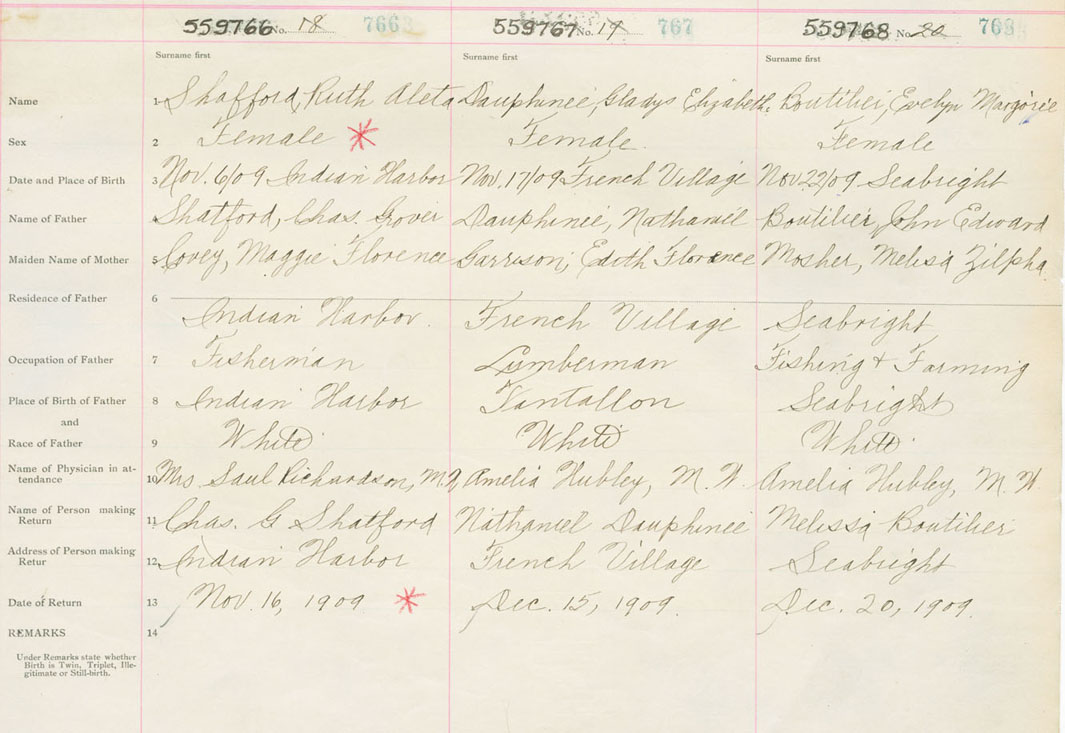 559766 No. 18 766 559767 No. 19 767 559768 No. 20 768
Surname first Surname first Surname first
Name 1 Shafford, Ruth Aleta Dauphinee, Gladys Elizabeth Boutilier, Evelyn Margorie
Sex 2 Female * Female Female
Date and Place of Birth 3 Nov. 6/09 Indian Harbor Nov. 17/09 French Village Nov 22/09 Seabright
Name of Father 4 Shatford, Chas. Grover Dauphinee, Nathaniel Boutilier, John Edward
Maiden Name of Mother 5 Covey, Maggie Florence Garrison, Edith Florence Mosher, Melissa Zilpha
Residence of Father 6
Indian Harbor French Village Seabright
Occupation of Father 7 Fisherman Lumberman Fishing & Farming
Place of Birth of Father 8 Indian Harbor Tantallon Seabright
and
Race of Father 9 White White White
Name of Physician in at-
tendance 10 Mrs Saul Richardson, M.W. Amelia Hubley, M.W. Amelia Hubley, M.W.
Name of Person making
Return 11 Chas. G Shatford Nathaniel Dauphinee Melissa Boutilier
Address of Person making
Retur 12 Indian Harbor French Village Seabright
Date of Return 13 Nov. 16, 1909 * Dec. 15, 1909. Dec. 20, 1909.
REMARKS 14
Under Remarks state whether
Birth is Twin, Triplet, Ille-
gitimate or Still-birth.